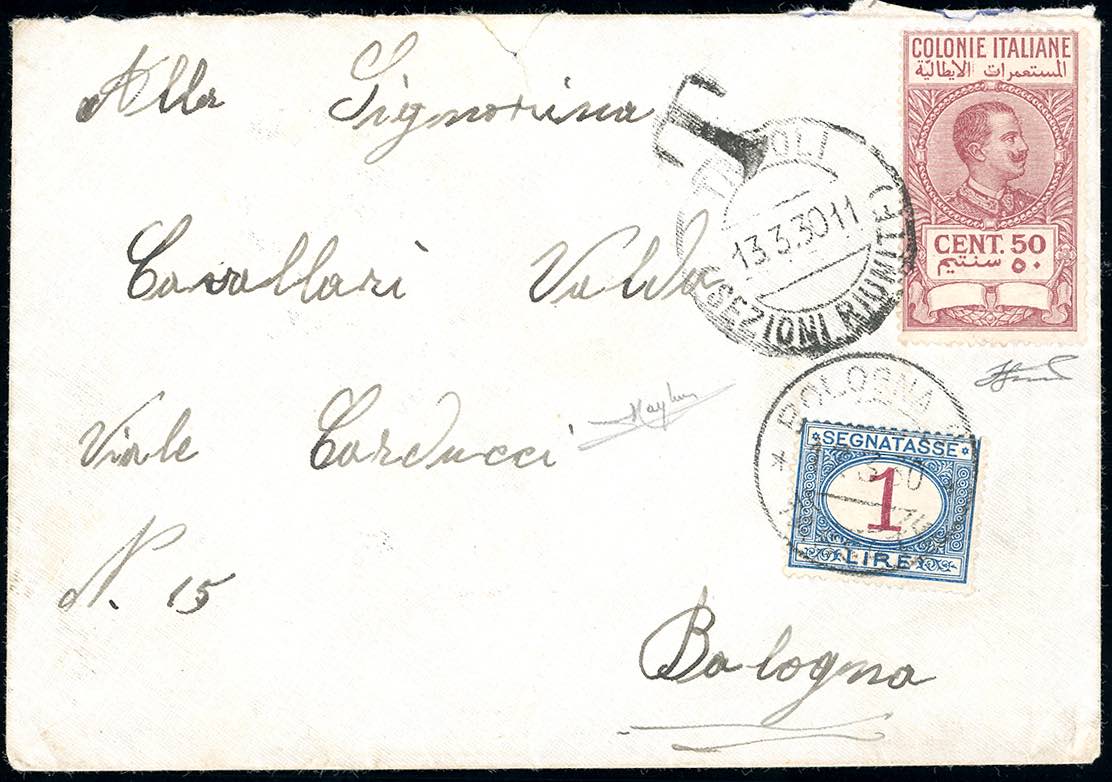 Alla Signorina
Cavallari Valda
Viale Carducci
N. 15
Bologna
T
COLONIE ITALIANE
المستعمرات الايطالية
CENT. 50
٥٠ سنتيم
13 3.30 11
SEZIONI RIUNITE
BOLOGNA
SEGNATASSE
1
LIRE